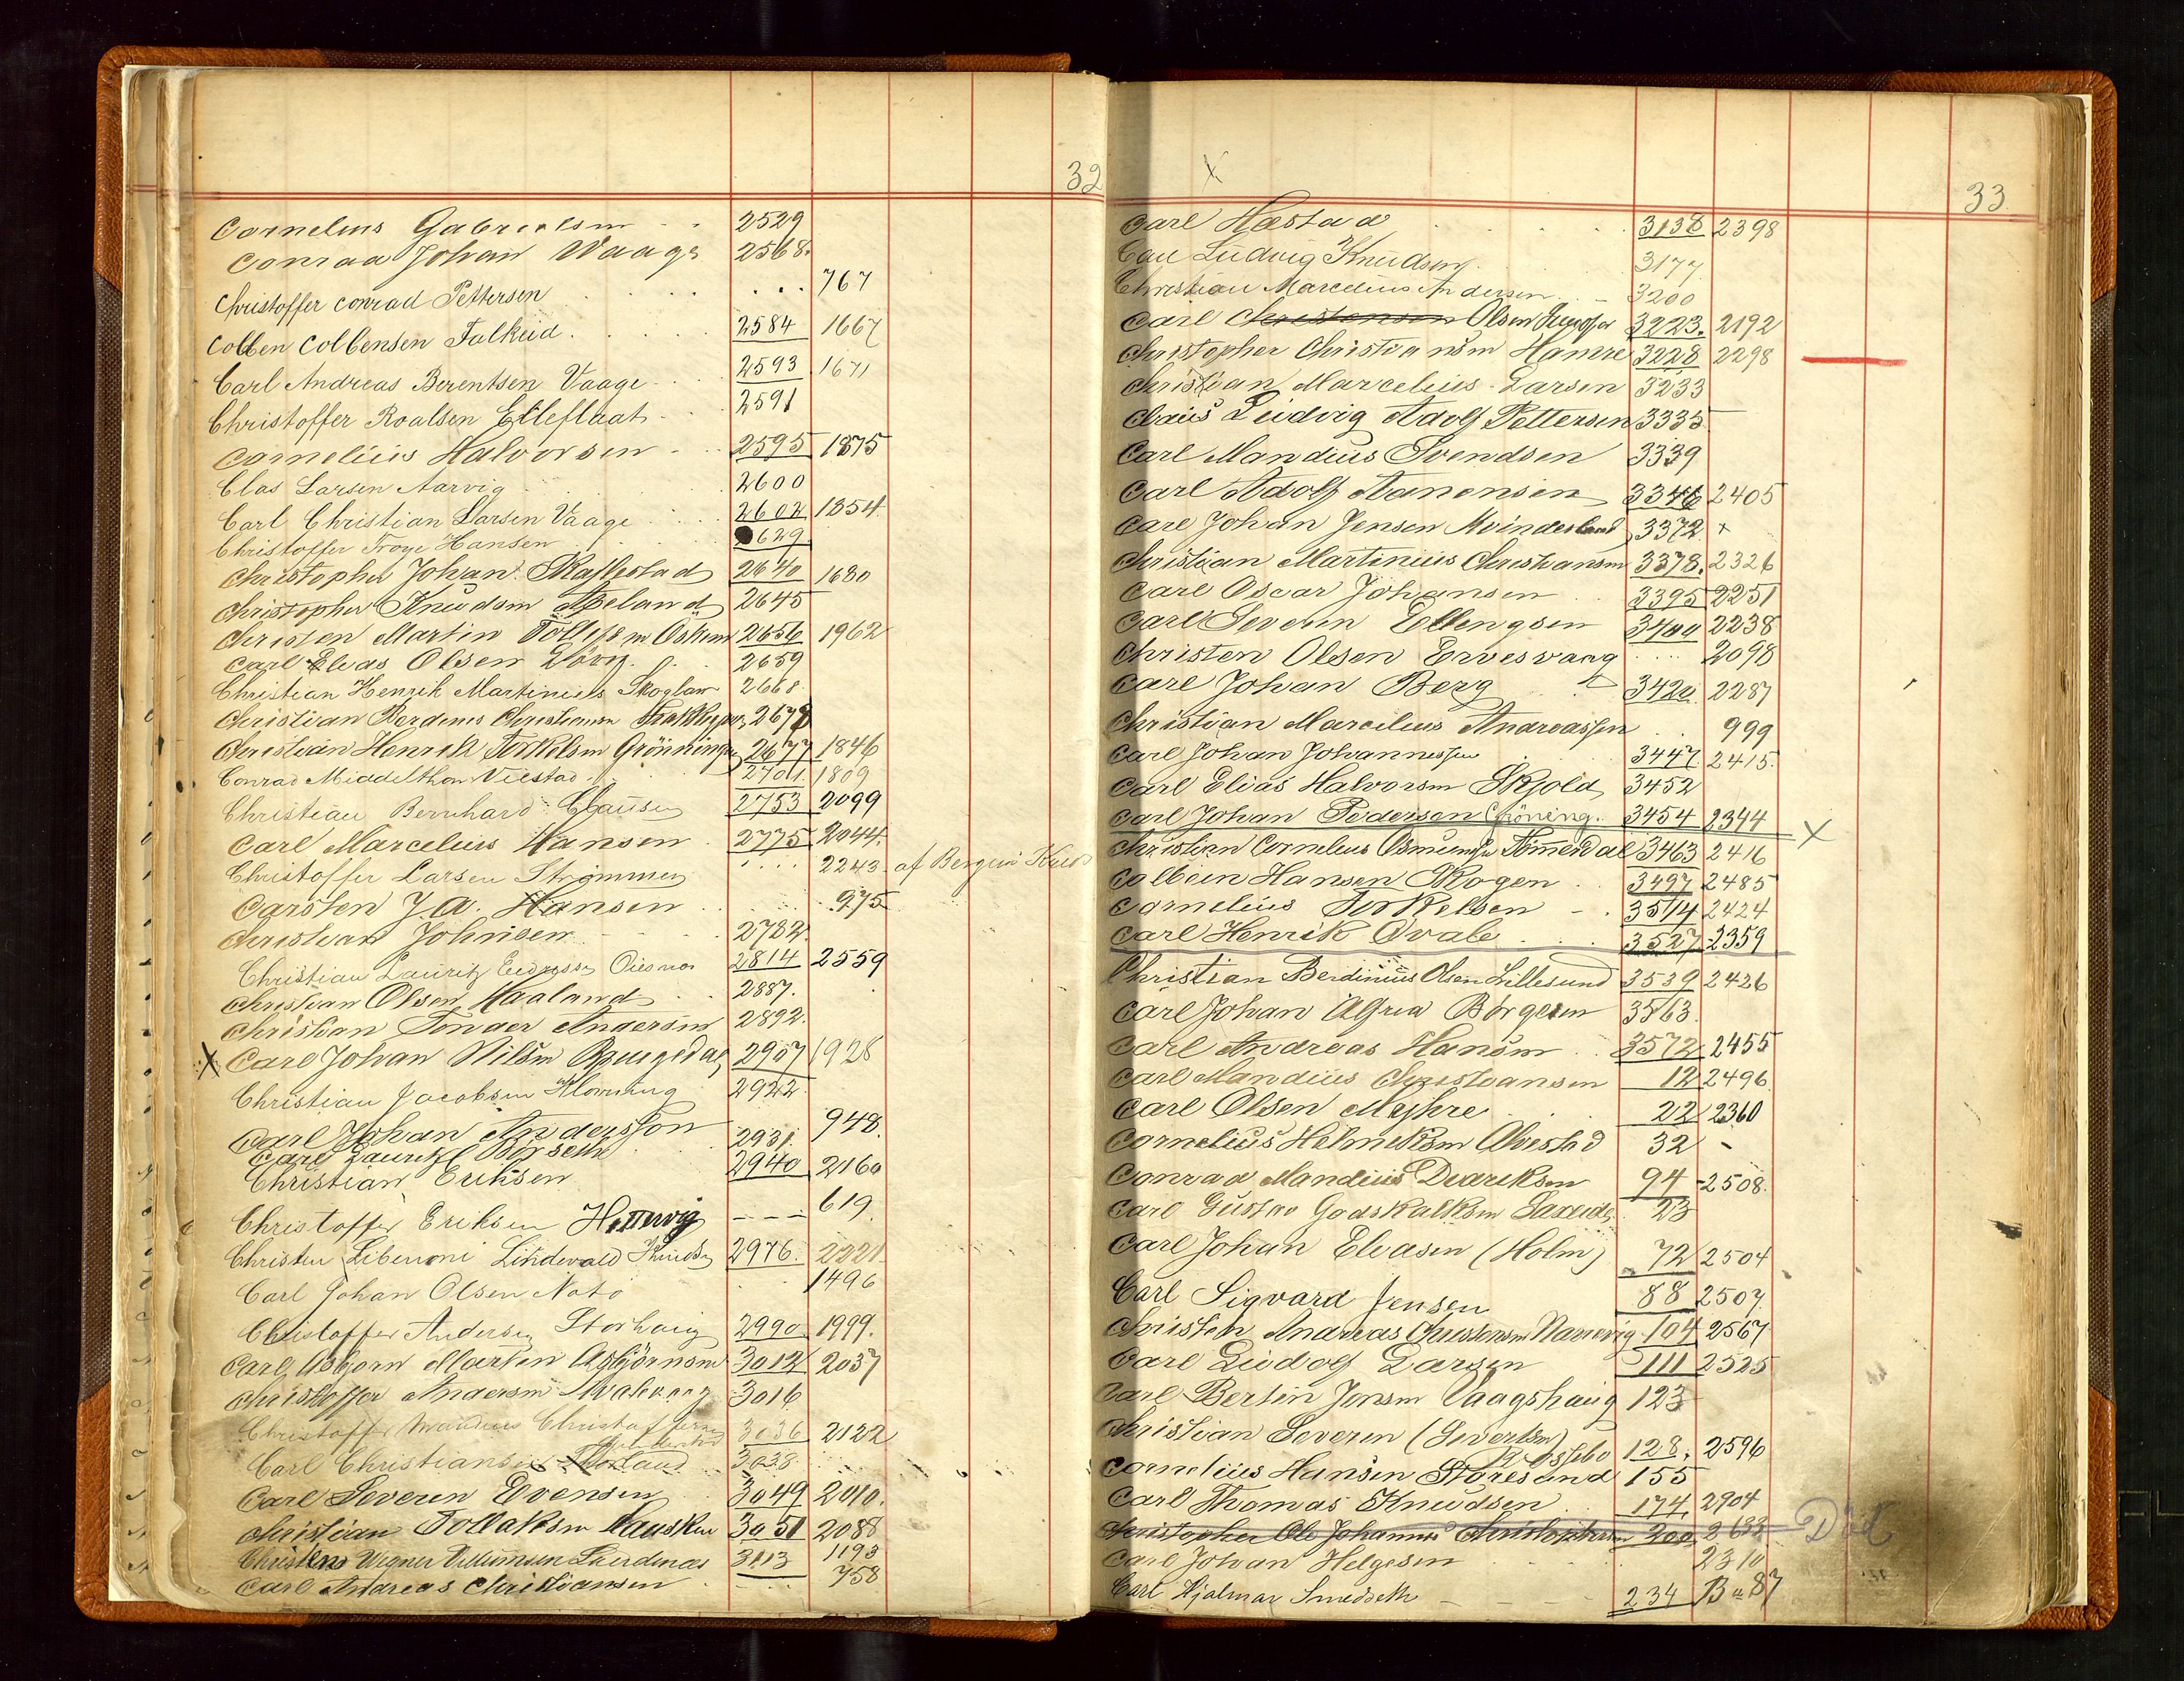 32
Cornelius Gabrielsen 2529
Conrad Johan Vaage 2568.
Christoffer Conrad Pettersen 767
Colben Colbensen Falkeid 2584 1667
Carl Andreas Berentsen Vaage 2593 1671
Christoffer Roalsen Etteflaat 2591
Cornelius Halvorsen 2595 1875
Clas Larsen Aarvig 2600
Carl Christian Larsen Vaage 2602 1354
Christoffer Troye Hansen 629
Christopher Johan Skallestad 2640 1680
Christopher Knudsen Apeland 2645
Christen Martin Tollefsen 2656 1962
Carl Elias Olsen 2659
Christian Henrik Martinius 2668
Christian Berdinus Christiansen
Christian Henrik Torkelsen Grönningen 2677 1846
Conrad Middelthon Viestad 2701 1809
Christian Bernhard Clausen 2753 2099
Carl Marcelius Hansen 2775 2044.
Christoffer Larsen Strømmen 2243 af Bergen
Carsten J.A. Hansen 975
Christian Johnsen 2782.
Christian Lauritz 2814 2559
Christian Olsen Haaland 2887.
Christian Tonder Andersen 2892.
X Carl Johan Nilsen 2907 1928
Christian Jacobsen 2922
Carl Johan Andersson 948.
Carl Lauritz 2931.
Christian Eriksen 2940 2160
Christoffer Eriksen 619
Christen Libenoni Lindevald Knudsen 2976. 2221
Carl Johan Olsen Notö 1496
Christoffer Andersen Storhaug 2990 1999.
Carl Asbjørn Martin Asbjörnsen 3012 2037
Christoffer Andersen 3016
Christoffer Mandius Christoffersen 3036 2122
Carl Christiansen 3038
Carl Severin Evensen 3049 2010.
Christian Tollaksen 3051 2088
Christen Wegner 3113 1193
Carl Andreas Christiansen 758
X
33
Carl Hæstad 3138 2398
Carl Ludvig Knudsen 3177
Christian Marcelius Andersen 3200
Carl Christensen Olsen 3223. 2192
Christopher Christiansen Hamre 3228 2298
Christian Marcelius Larsen 3233
Claus Ludvig Adolf Pettersen 3335
Carl Mandius Svendsen 3339
Carl Adolf Aanensen 3346 2405
Carl Johan Jensen 3372 x
Christian Martinius Christiansen 3378. 2326
Carl Oscar Johansen 3395 2251
Carl Severin Ellengsen 3400 2238
Christen Olsen Ervesvaag 2098
Carl Johan Berg 3420 2287
Christian Marcelius Andreassen 999
Carl Johan Johannessen 3447 2415.
Carl Elias Halvorsen Skjold 3452
Carl Johan Pedersen Gröning. 3454 2344 X
Christian Cornelius Osmundsen Tömmerdal 3463 2416
Colbein Hansen Skogen 3497 2485
Cornelius Torkelsen 3514 2424
Carl Henrik Qvale 3527 2359
Christian Berdinius Olsen Lillesund 3539 2426
Carl Johan Børgesen 3563.
Carl Andreas Hansen 3572 2455
Carl Mandius Christiansen 12 2496
Carl Olsen Myhre 22 2360
Cornelius Helmiksen 32 -
Conrad Mandius Didriksen 94 2508.
Carl Gustav Godskalksen 23
Carl Johan Eliasen (Holm) 72 2504
Carl Sigvard Jensen 88 2507
Christen Andreas Christensen 104 2567
Carl Ludolf Larsen 111 2525
Carl Bertin Jensen Vaagshaug 123
Christian Severin (Sivertsen) 128. 2596
Cornelius Hansen Storesund 155
Carl Thomas Knudsen 174 2904
Christopher Ole Johannes Christophersen 200 2633 Död
Carl Johan Helgesen 2310
Carl Hjalmar Smedseth 234 B 87